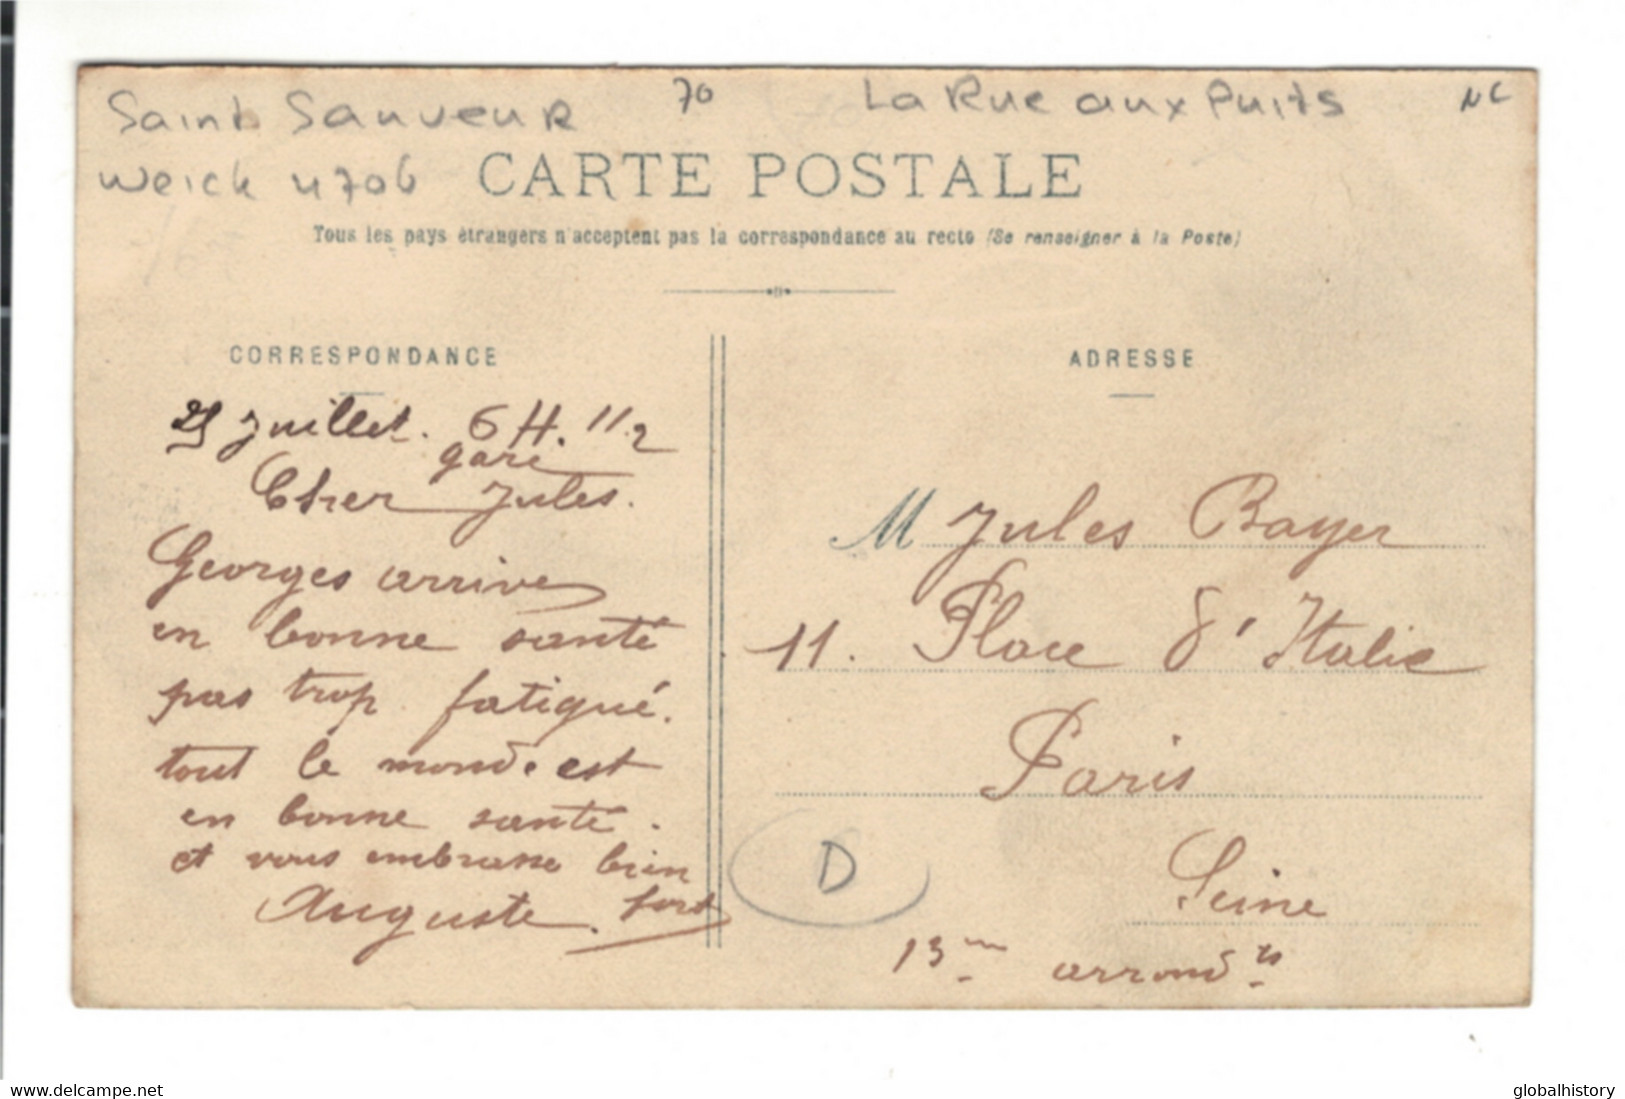 Saint Sauveur 70 La Rue aux Puits NC
Weick 4706
CARTE POSTALE
Tous les pays étrangers n'acceptent pas la correspondance au recto (Se renseigner à la Poste)
CORRESPONDANCE
Juillet. 6 H. 11 2
gare
Cher Jules.
Georges arrive
en bonne santé
pas trop fatigué.
tout le monde est
en bonne santé.
et vous embrasse bien
Auguste. fort
ADRESSE
M Jules Bayer
11. Place d'Italie
Paris
Seine
D
13me arrondts
www.delcampe.net
globalhistory